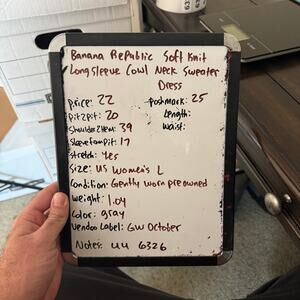 Banana Republic Soft Knit
Longsleeve Cowl Neck Sweater
Dress
Price: 22
Poshmark: 25
Pit2pit: 20
Length:
Shoulder2Hem: 39
Waist:
Sleeve from pit: 17
Stretch: yes
Size: US Women's L
Condition: Gently worn preowned
Weight: 1.04
Color: gray
Vendoo Label: GW October
Notes: UU 6326